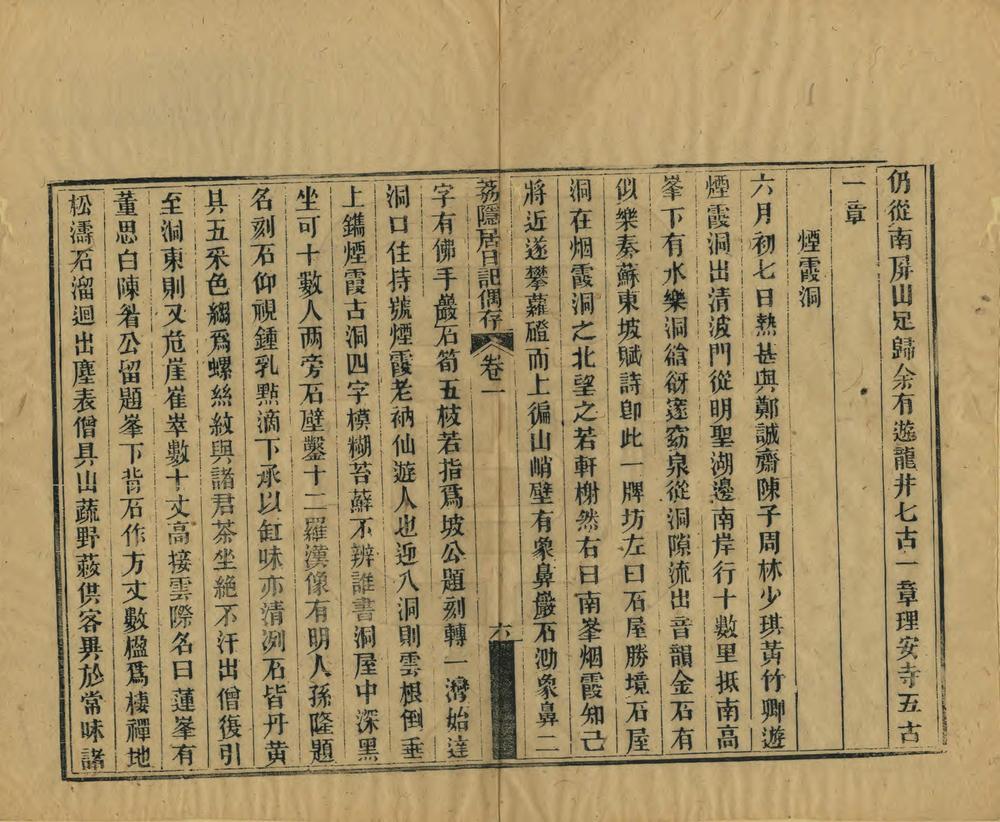 仍從南屏山足歸余有遊龍井七古一章理安寺五古
一章
煙霞洞
六月初七日熱甚與鄭誠齋陳子周林少琪黃竹卿遊
煙霞洞出清波門從明聖湖邊南岸行十數里抵南高
峯下有水樂洞谽谺窪窈泉從洞隙流出音韻金石有
似樂奏蘇東坡賦詩即此一牌坊左曰石屋勝境石屋
洞在烟霞洞之北望之若軒榭然右曰南峯烟霞知己
將近遂攀蘿磴而上徧山峭壁有象鼻巖石泐象鼻二
荔隱居日記偶存 卷一 六
字有佛手巖石筍五枝若指爲坡公題刻轉一灣始達
洞口住持號煙霞老衲仙遊人也迎入洞則雲根倒垂
上鐫煙霞古洞四字模糊苔蘚不辨誰書洞屋中深黑
坐可十數人两旁石壁鑿十二羅漢像有明人孫隆題
名刻石仰視鍾乳點滴下承以缸味亦清冽石皆丹黃
具五采色縐爲螺絲紋與諸君茶坐絶不汗出僧復引
至洞東則又危崖崔崒數十丈高接雲際名曰蓮峯有
董思白陳眉公留題峯下背石作方丈數楹爲棲禪地
松濤石溜迴出塵表僧具山蔬野蔌供客異於常味諸